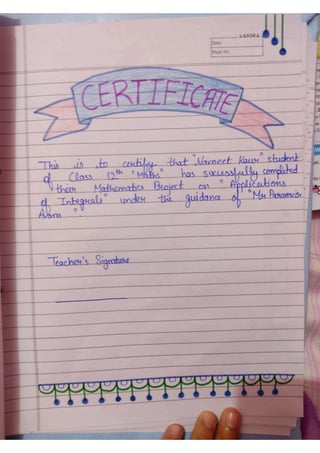 Date
Page No.
CERTIFICATE
This is to certify that "Navneet Kaur" student
of Class 12th "Maths" has successfully completed
their Mathematics Project on "Applications
of Integrals" under the guidance of "Mr Paramvir
Arora"
Teacher's Signature